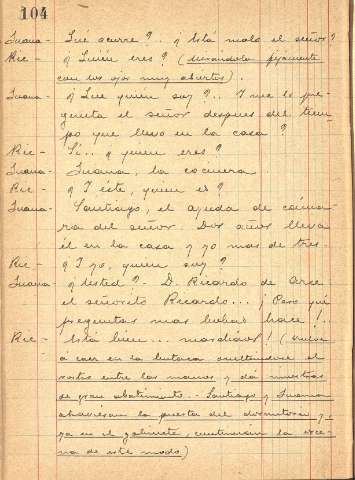 104
Juana- Qué ocurre?.. ¿Está malo el señor?
Ric - ¿Quién eres? (mirandola fijamente
con los ojos muy abiertos).
Juana- ¿Que quien soy?.. Y me lo pre-
gunta el señor despues del tiem-
po que llevo en la casa?
Ric - Si.. ¿quien eres?
Juana- Juana, la cocinera.
Ric - ¿Y éste, quien es?
Juana- Santiago, el ayuda de cáma-
ra del señor. Dos años lleva
él en la casa y yo mas de tres.
Ric - ¿Y yo, quien soy?
Juana- ¿Usted? - D. Ricardo de Arce
el señorito Ricardo... ¡Pero qué
preguntas mas bobas hace!..
Ric - Está bien... marchaos! (vuelve
á caer en la butaca ocultandose el
rostro entre las manos y dá muestras
de gran abatimiento.- Santiago y Juana
atraviesan la puerta del dormitorio y
ya en el gabinete, continúan la esce-
na de este modo)